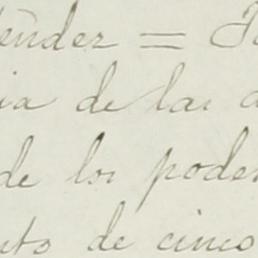 ender =
ia de las
de los poder
uto de cinco